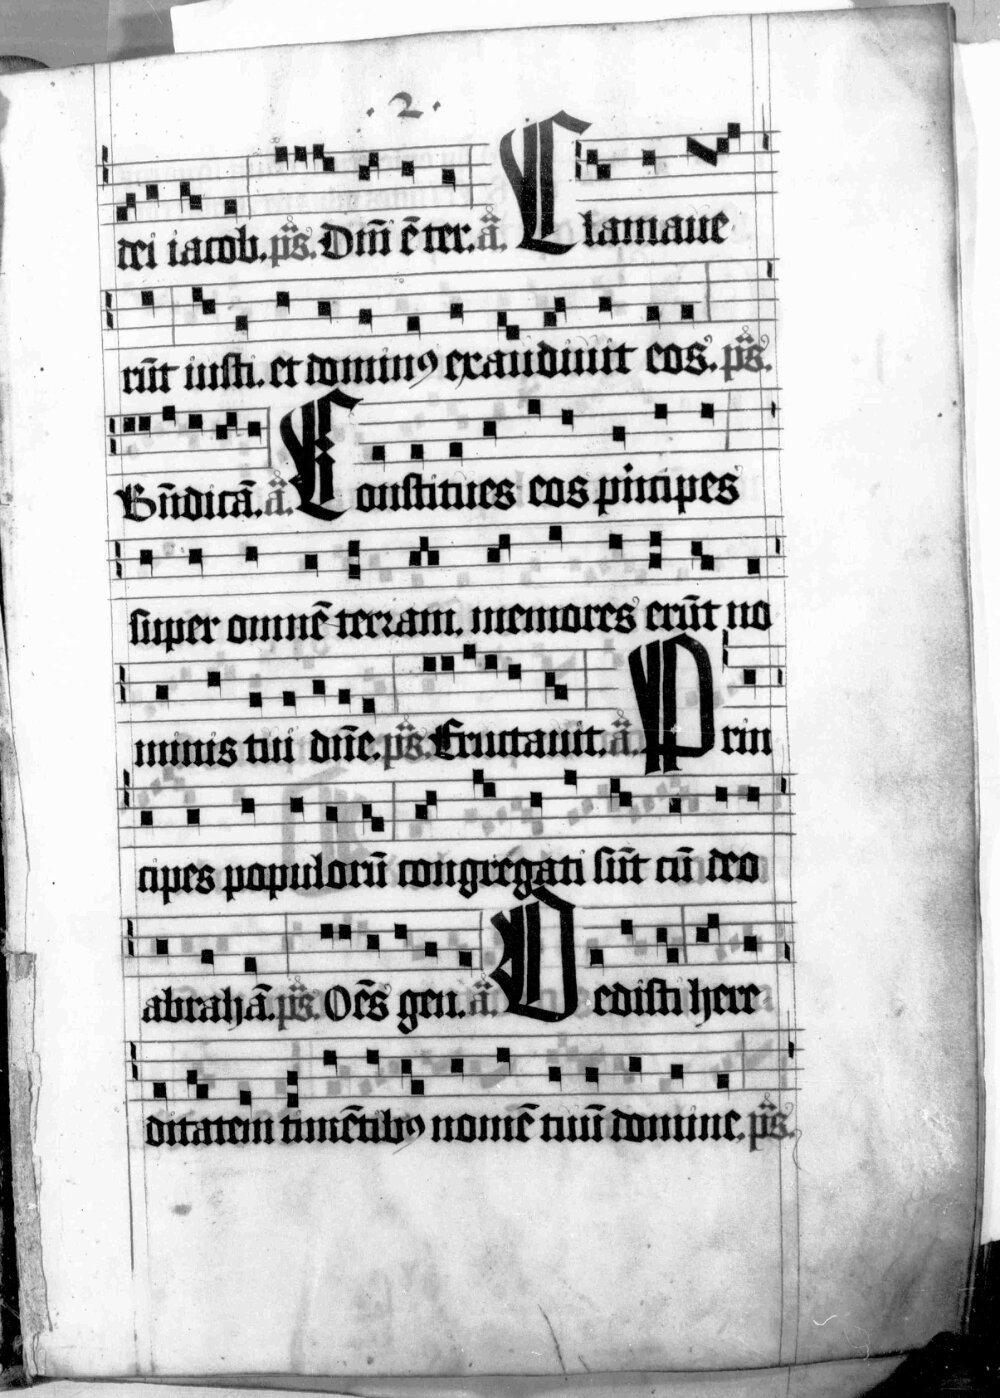 .2.
dei iacob. p̄s. Dm̄ ē ter. a͞. Clamaue
rūt iusti. et dominꝰ exaudiuit eos. p̄s.
Bn̄dicā. a͞. Constitues eos pͥncipes
super omnē terram. memores erūt no
minis tui dn̄e. p̄s. Eructauit. a͞. Prin
cipes populorū congregati sūt cū deo
abrahā. p̄s. Oēs gen. a͞. Dedisti here
ditatem timētibꝰ nomē tuū domine. p̄s.